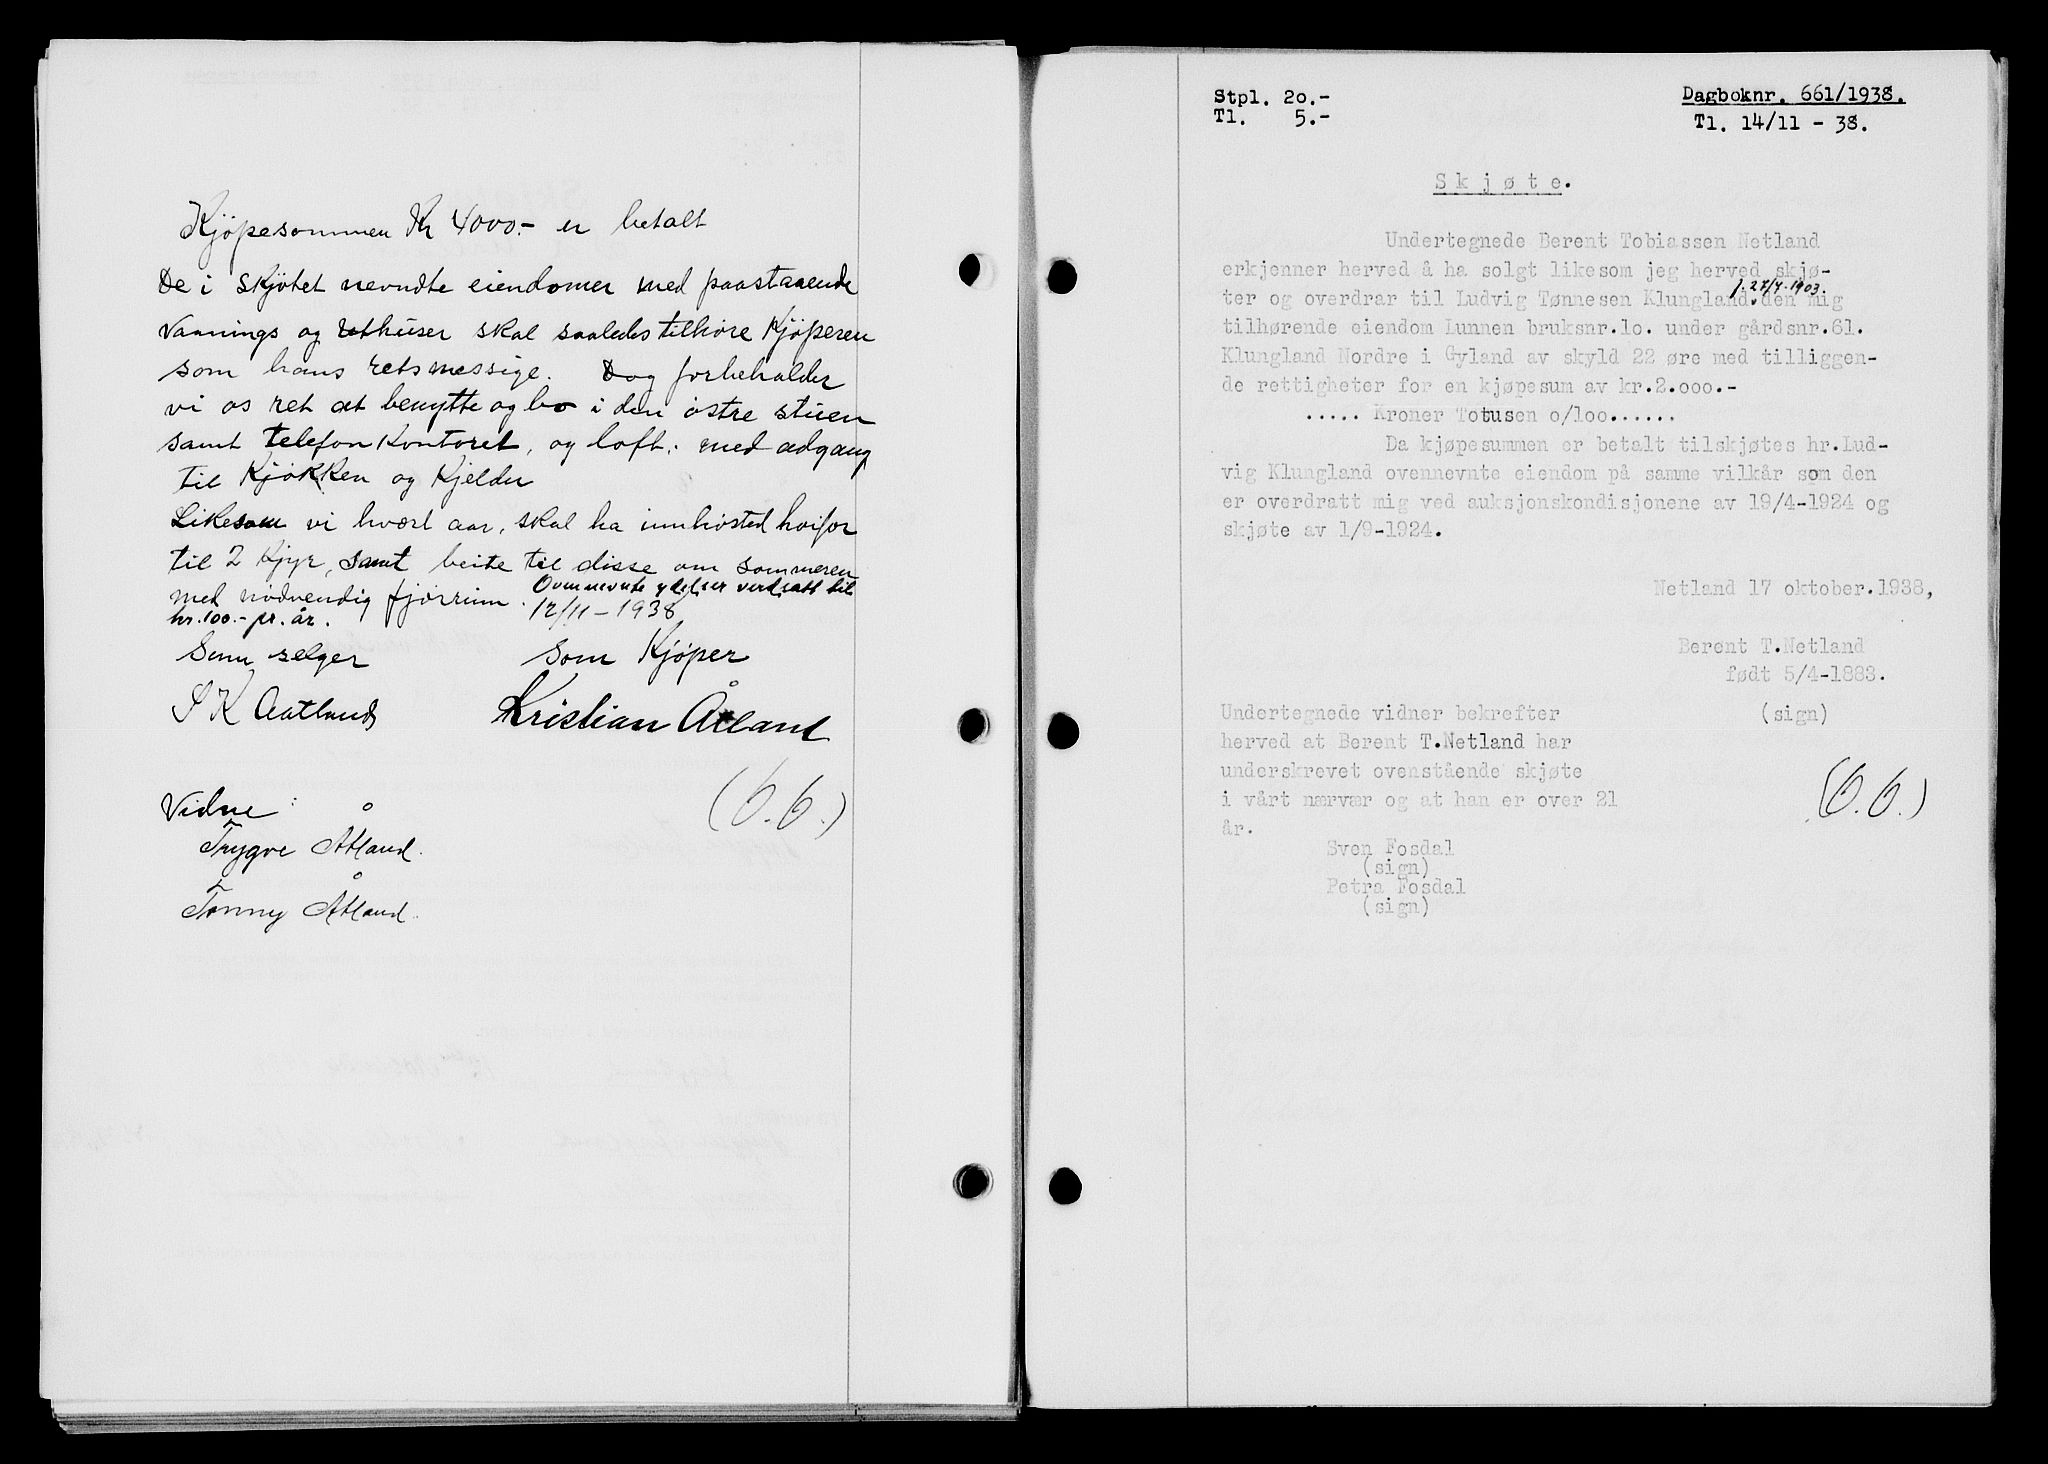 Kjöpesommen Kr 4000.- er betalt
De i skjötet nevndte eiendomer med paastaaende
Vaanings og uthuser skal saaledes tilhøre Kjöperen
som hans retsmessige. Dog forbeholder
vi os ret at benytte og bo i den østre stuen
samt telefon Kontoret, og loft. med adgang
til Kjøkken og Kjelder
Likesom vi hvært aar, skal ha innhøsted høifor
til 2 Kjyr, samt beite til disse om sommeren
med nødvendig fjørrum. Ovennevnte ydelser verdsatt til
kr. 100.- pr. år. 12/11-1938
Som selger som Kjøper
S K Aatland Kristian Åtland
Vidne:
Trygve Åtland.
Tønny Åtland.
(6.6.)
Stpl. 20.-
Tl. 5.-
Dagboknr. 661/1938.
Tl. 14/11 - 38.
Skjøte.
Undertegnede Berent Tobiassen Netland
erkjenner herved å ha solgt likesom jeg herved skjø-
f. 27/4-1903
ter og overdrar til Ludvig Tønnesen Klungland. den mig
tilhørende eiendom Lunnen bruksnr.lo. under gårdsnr.61.
Klungland Nordre i Gyland av skyld 22 øre med tilliggen-
de rettigheter for en kjøpesum av kr.2.ooo.-
..... Kroner Totusen o/loo......
Da kjøpesummen er betalt tilskjøtes hr.Lud-
vig Klungland ovennevnte eiendom på samme vilkår som den
er overdratt mig ved auksjonskondisjonene av 19/4-1924 og
skjøte av 1/9-1924.
Netland 17 oktober.1938,
Berent T.Netland
født 5/4-1883.
(sign)
Undertegnede vidner bekrefter
herved at Berent T.Netland har
underskrevet ovenstående skjøte
i vårt nærvær og at han er over 21
år.
Sven Fosdal
(sign)
Petra Fosdal
(sign)
(6.6.)